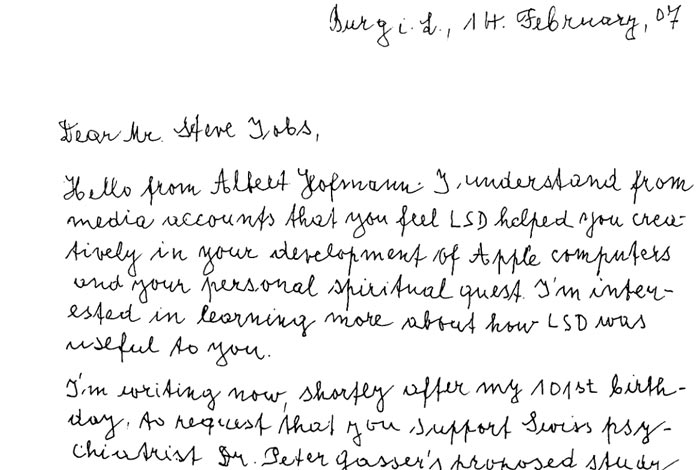 Burg i. L., 14. February, 07
Dear Mr. Steve Jobs,
Hello from Albert Hofmann. I understand from
media accounts that you feel LSD helped you crea-
tively in your development of Apple computers
and your personal spiritual quest. I'm inter-
ested in learning more about how LSD was
useful to you.
I'm writing now, shortly after my 101st birth-
day, to request that you support Swiss psy-
chiatrist Dr. Peter Gasser's proposed study